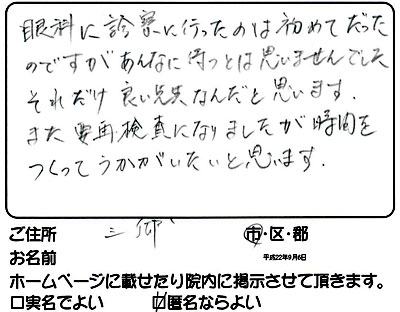 眼科に診察に行ったのは初めてだった
のですがあんなに待つとは思いませんでした
それだけ良い先生なんだと思います.
また要再検査になりましたが時間を
つくってうかがいたいと思います.
ご住所 三郷 市・区・郡
お名前 平成22年9月6日
ホームページに載せたり院内に掲示させて頂きます。
□実名でよい □匿名ならよい